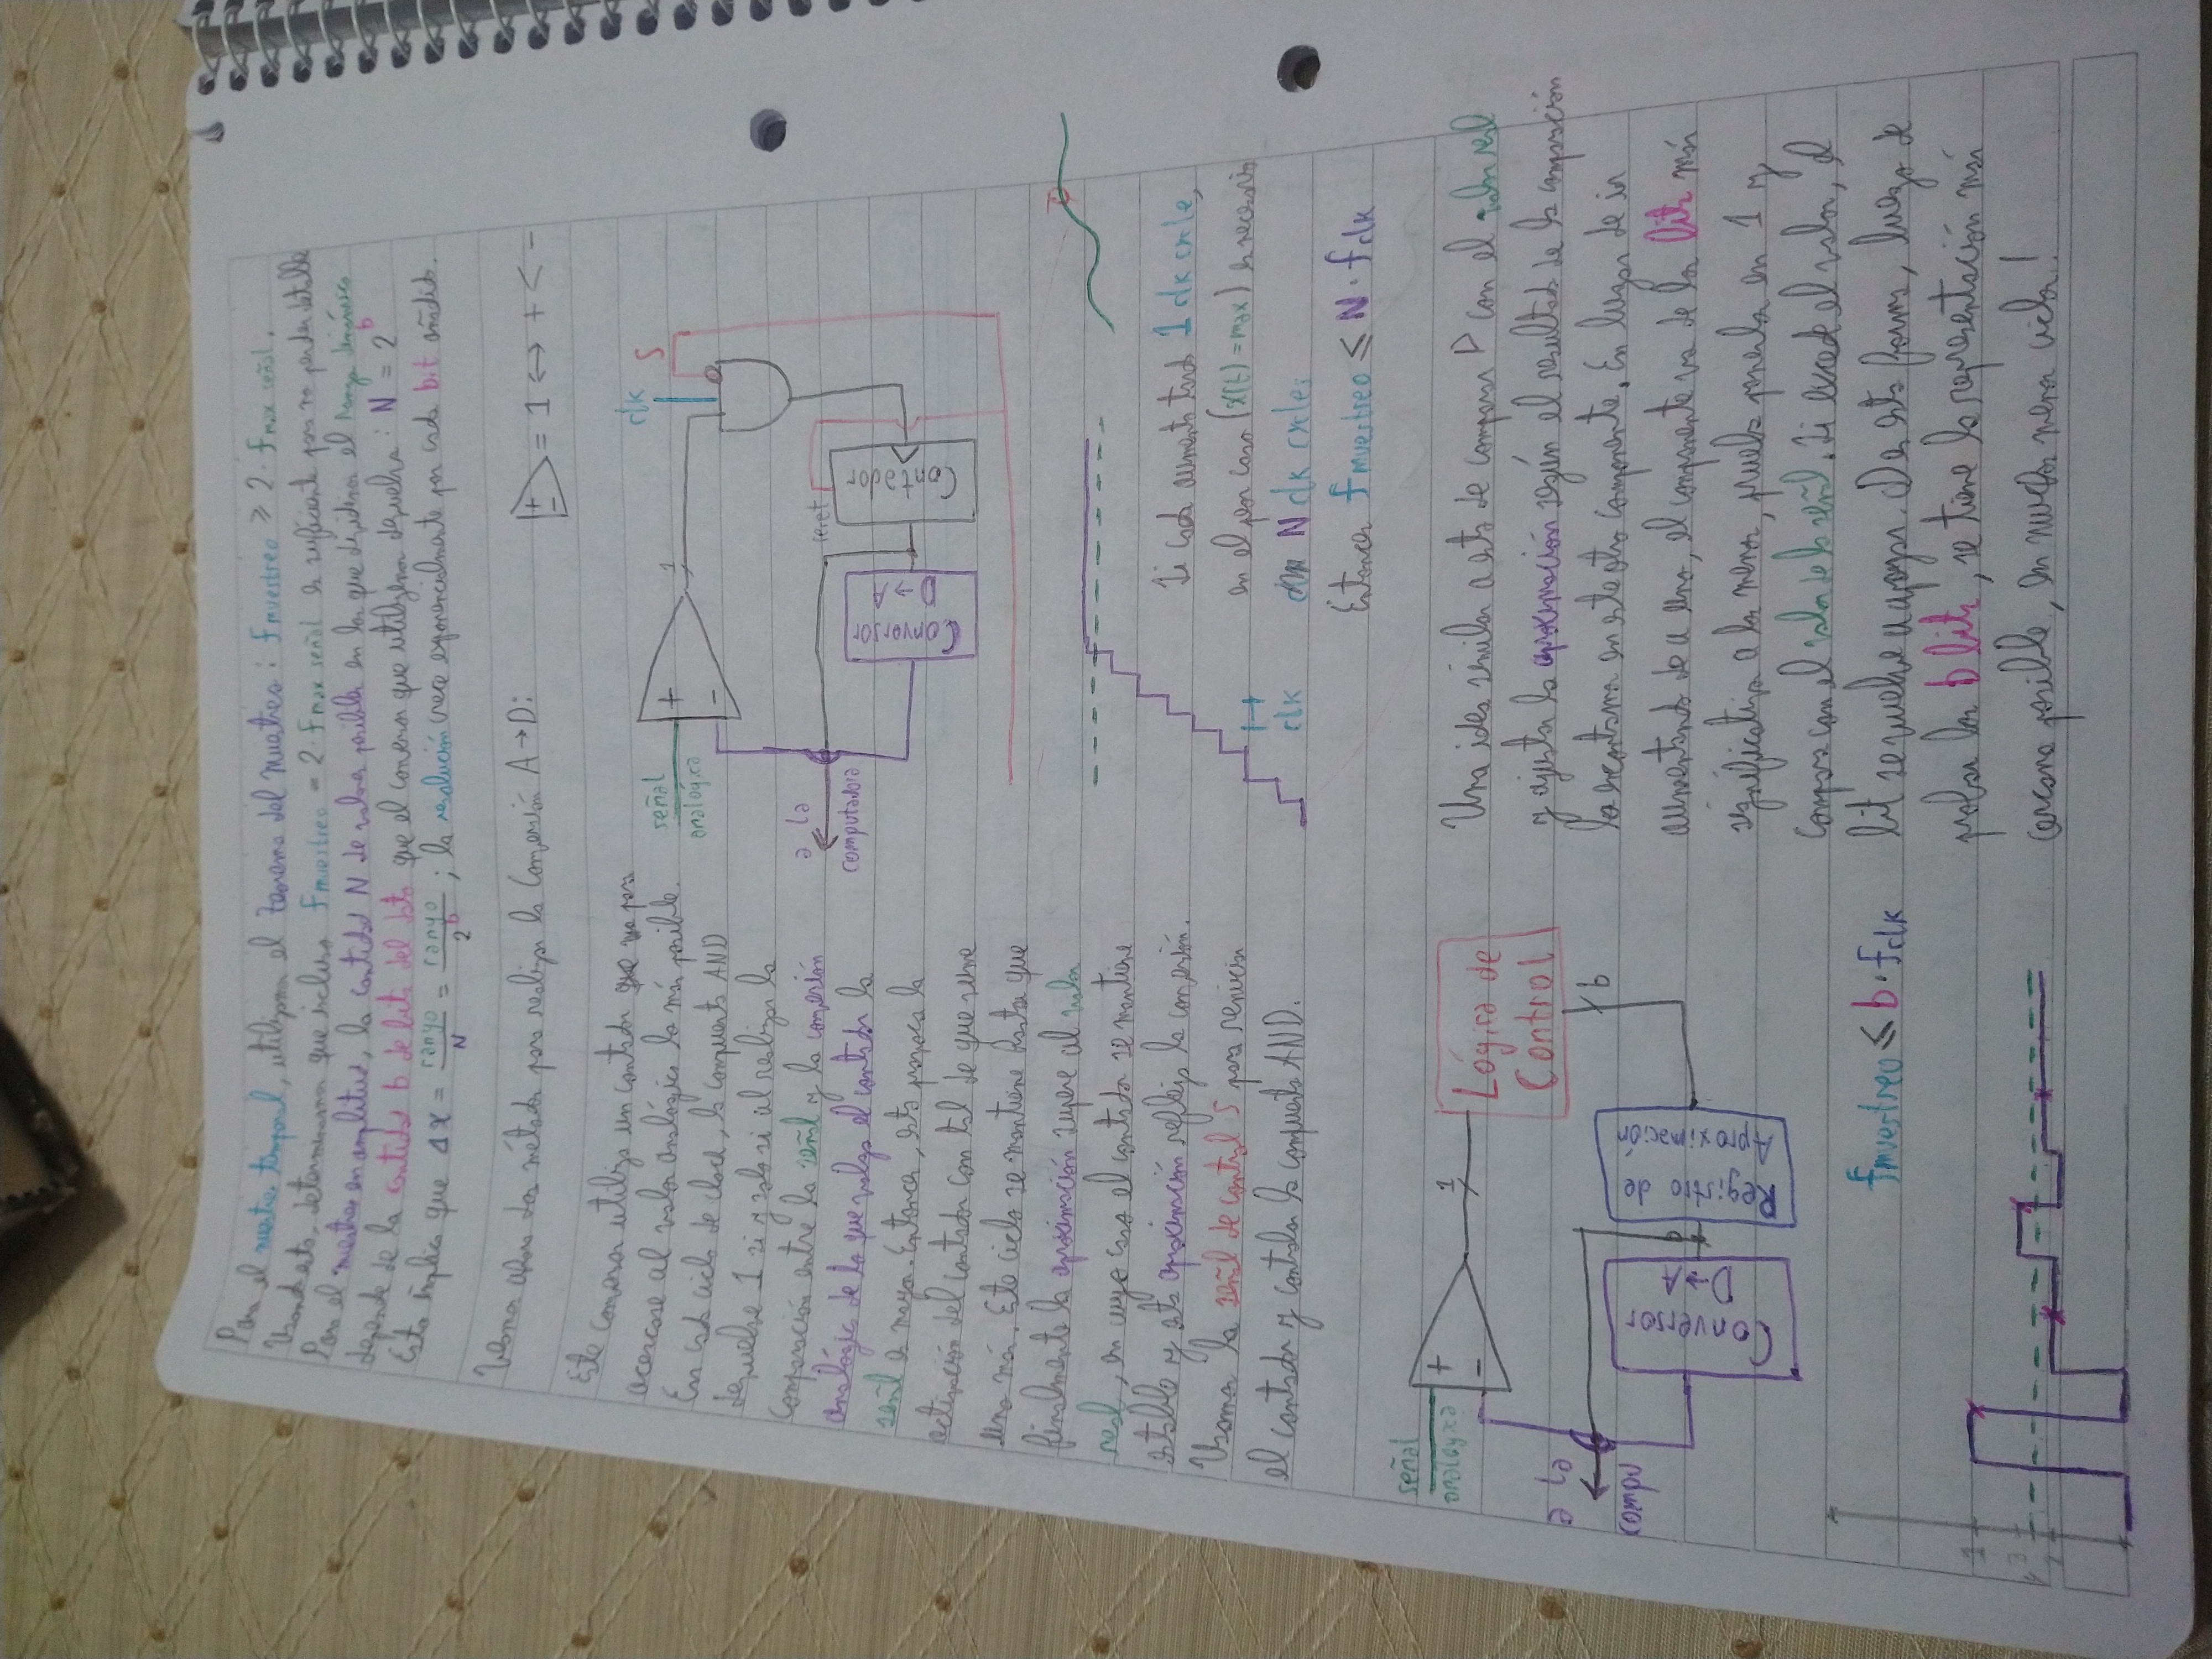 Para el muestreo temporal, utilizamos el teorema del muestreo: fmuestreo ≥ 2 · fmax señal.
Usando esto, determinamos que incluso fmuestreo = 2 · fmax señal es suficiente para no perder detalle
Para el muestreo en amplitud, la cantidad N de valores posibles en los que dividimos el rango dinámico
depende de la cantidad b de bits del dato que el conversor que utilizemos devuelva: N = 2^b
Esto implica que Δx = rango/N = rango/2^b ; la resolución crece exponencialmente por cada bit añadido.
Veamos ahora dos métodos para realizar la conversión A→D:
+ - = 1 ↔ + < -
Este conversor utiliza un contador para
acercarse al valor analógico lo más posible.
En cada ciclo de clock, la compuerta AND
devuelve 1 si y solo si al realizar la
comparación entre la señal y la conversión
analógica de lo que valga el contador la
señal es mayor. Entonces, esto provoca la
activación del contador con tal de que sume
uno más. Este ciclo se mantiene hasta que
finalmente la aproximación supere al valor
real, en cuyo caso el contador se mantiene
estable y esta aproximación refleja la conversión.
Usamos la señal de control S para reiniciar
el contador y controlar la compuerta AND.
señal
analógica
+
-
1
clk
S
a la
computadora
reset
Conversor
D→A
Contador
clk
Si cada aumento tarda 1 clk cycle,
en el peor caso (x(t) = max) es necesario
N clk cycles
Entonces fmuestreo ≤ N · fclk
señal
analógica
+
-
1
Lógica de
Control
b
a la
compu
Conversor
D→A
Registro de
Aproximación
fmuestreo ≤ b · fclk
Una idea similar a esta de comparar con el valor real
y ajustar la aproximación según el resultado de la comparación
la encontramos en este otro componente. En lugar de ir
aumentando de a uno, el componente va de los bits más
significativos a los menos, prueba ponerlos en 1 y
compara con el valor de la señal. Si excede el valor, el
bit se vuelve a apagar. De esta forma, luego de
probar los b bits, se tiene la representación más
cercana posible, en muchos menos ciclos!